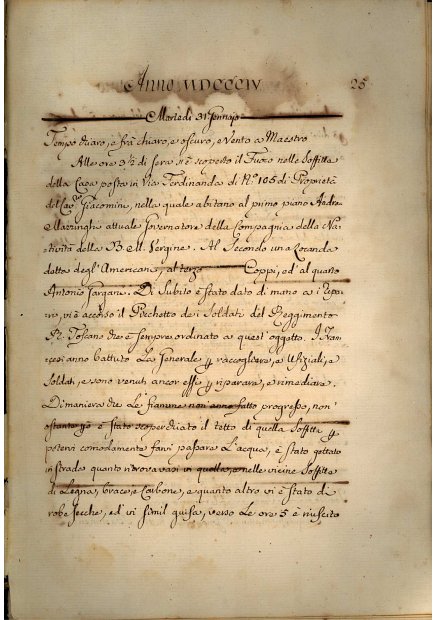 Anno MDCCCIV 25
Martedi 31 Gennajo
Tempo chiaro, e frà chiaro, e oscuro, e Vento a Maestro
Alle ore 3½ di sera si è scoperto il Fuoco nelle Soffitte
della Casa posta in Via Ferdinanda di N.º 105 di Proprietà
del Cav. Giacomini, nella quale abitano al primo piano Andrea
Mazzinghi attuale Governatore della Compagnia della Na-
tività della B. M. Vergine. Al Secondo una Locanda
detta degl'Americani, al terzo Coppi, ed al quarto
Antonio Fargani. Di Subito è stato dato di mano a i
ri, vi è accorso il Picchetto de i Soldati del Reggimento
R. Toscano che è sempre ordinato a quest'oggetto. I Fran-
cesi anno battuto La Generale p raccogliere, e Ufiziali, e
Soldati, e sono venuti ancor essi p riparare, e rimediare.
Di maniera che Le fiamme non anno fatto progresso, non
ostante è stato scoperchiato il tetto di quella Soffitta p
potervi comodamente farvi passare L'acqua, è stato gettato
in strada quanto ritrovavasi in quella, e nelle vicine Soffitte
di Legna, brace, e Carbone, e quanto altro vi è stato di
robe secche, ed in simil guisa, verso Le ore 5 è riuscito